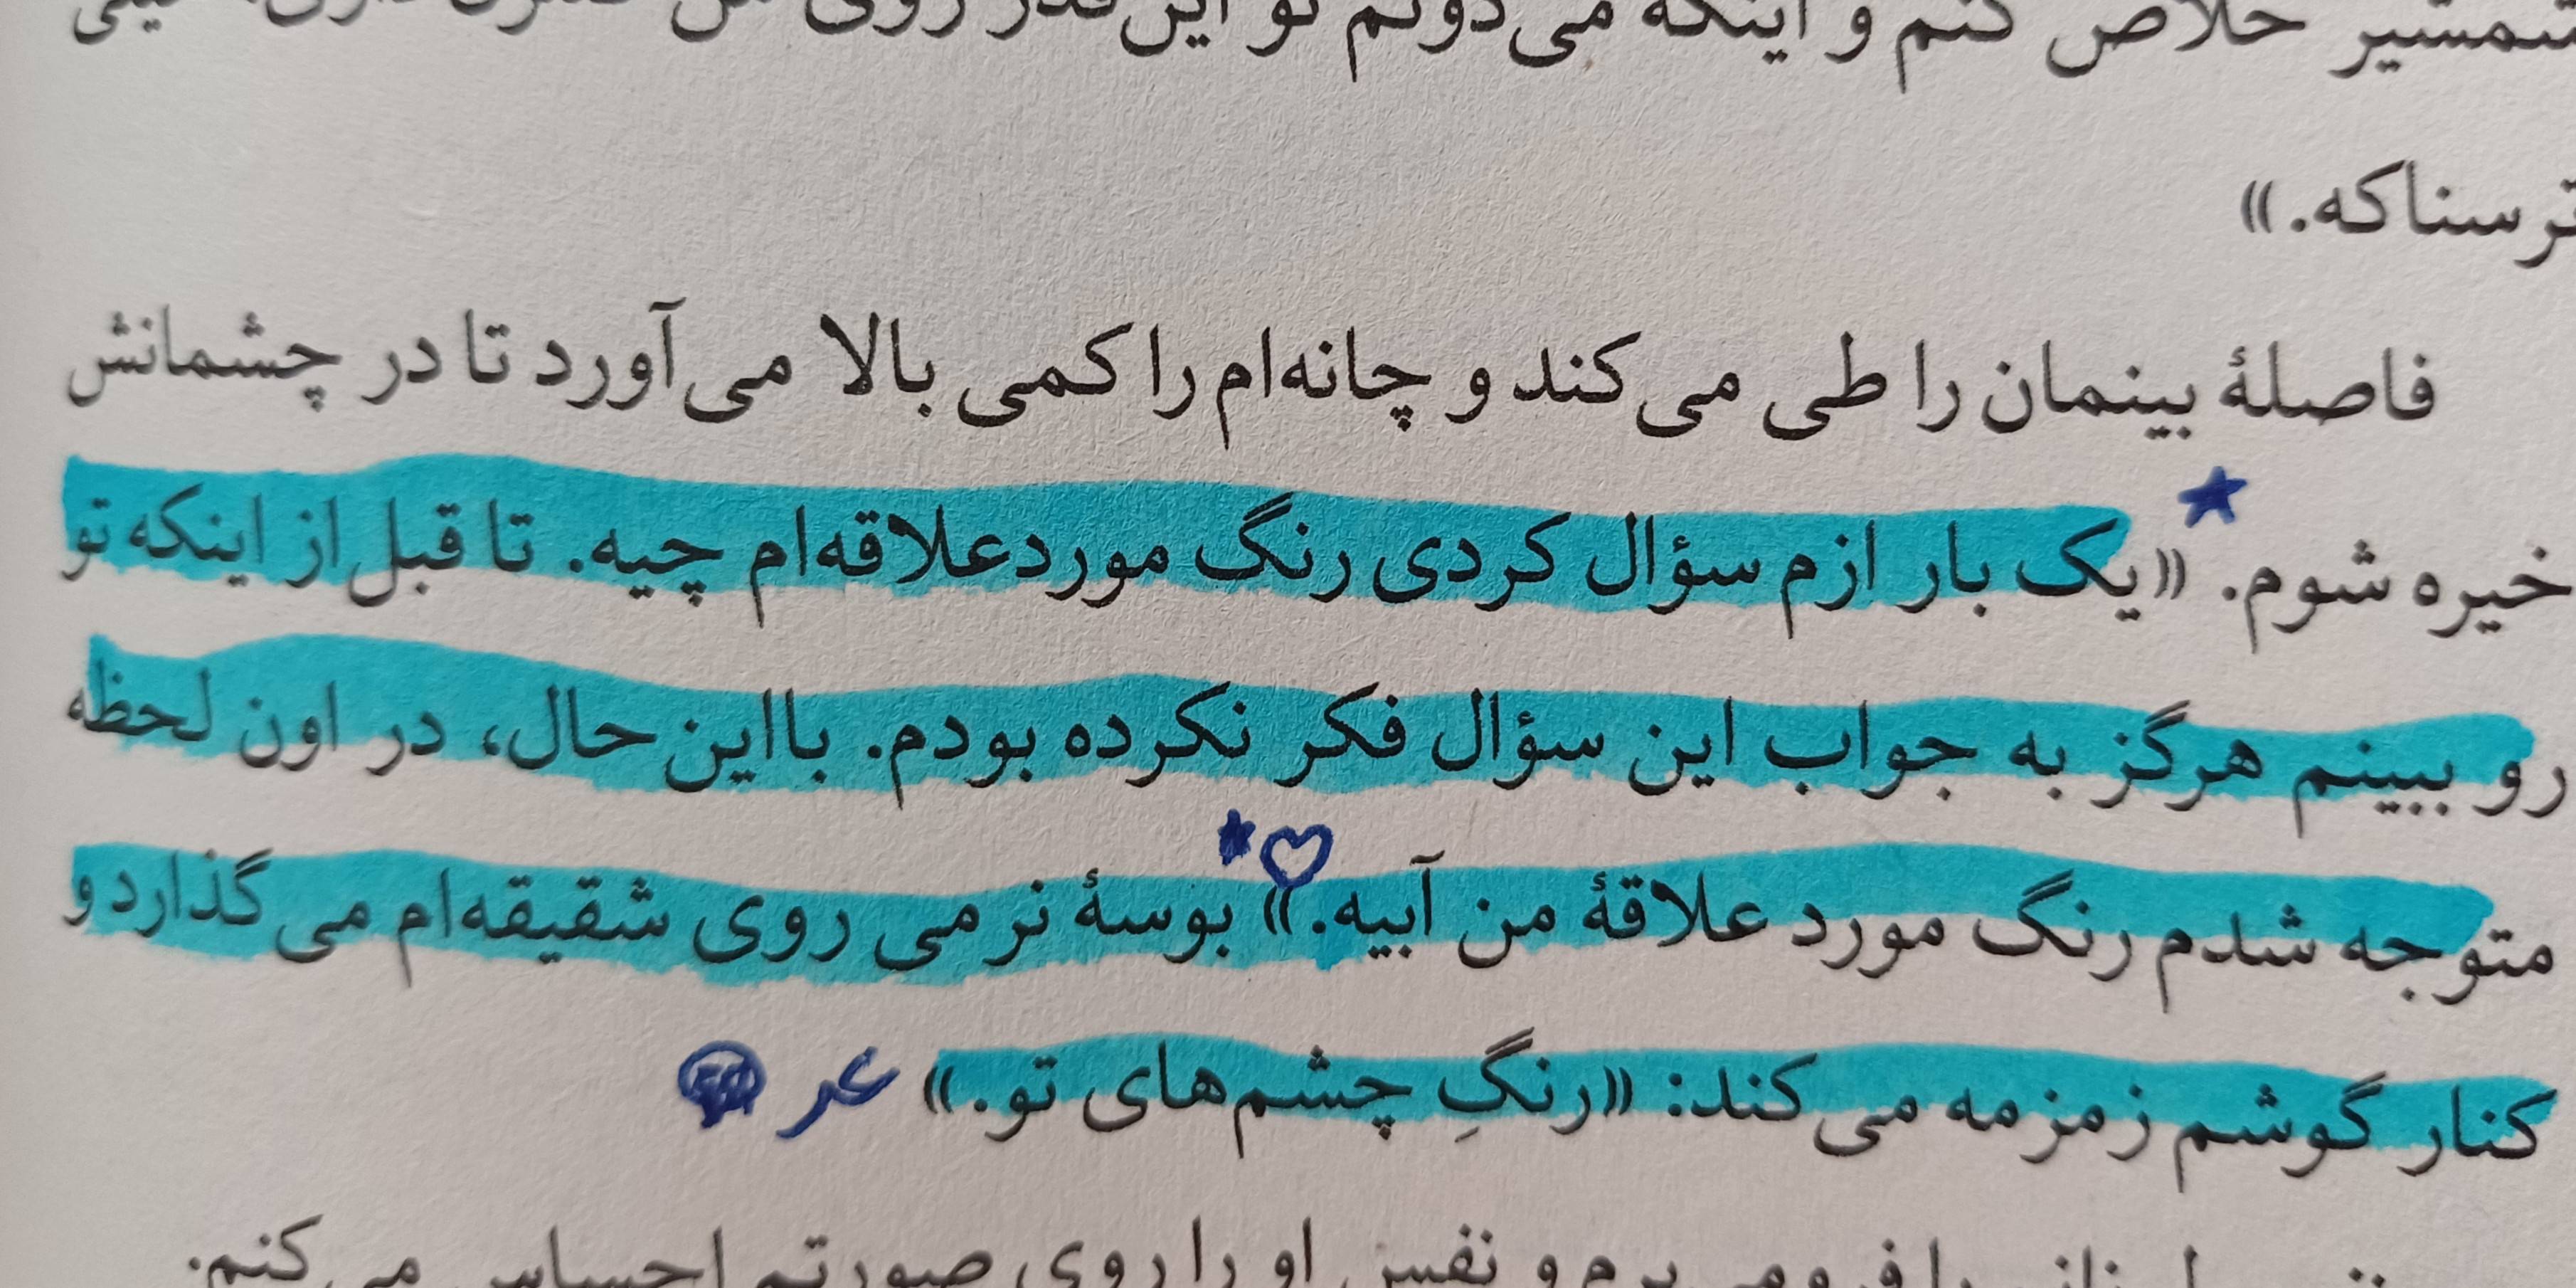 شمشیر خلاص کنم و اینکه می‌دونم تو این‌قدر روی من
ترسناکه.»
فاصلهٔ بینمان را طی می‌کند و چانه‌ام را کمی بالا می‌آورد تا در چشمانش
خیره شوم. «یک بار ازم سؤال کردی رنگ موردعلاقه‌ام چیه. تا قبل از اینکه تو
رو ببینم هرگز به جواب این سؤال فکر نکرده بودم. بااین‌حال، در اون لحظه
متوجه شدم رنگ مورد علاقهٔ من آبیه.» بوسهٔ نرمی روی شقیقه‌ام می‌گذارد و
کنار گوشم زمزمه می‌کند: «رنگِ چشم‌های تو.» عر
را فرومی‌برم و نفس او را روی صورتم احساس می‌کنم.